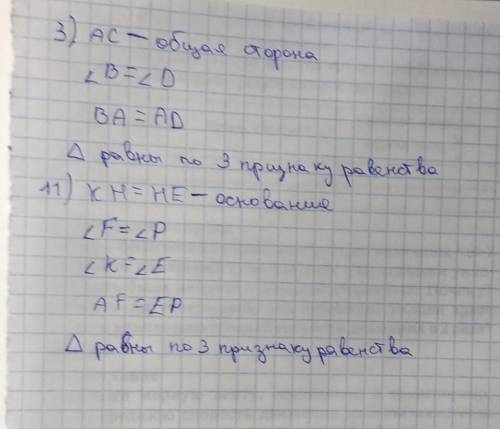 3) AC – общая сторона
∠B = ∠D
BA = AD
Δ равны по 3 признаку равенства
11) KH = HE – основание
∠F = ∠P
∠K = ∠E
AF = EP
Δ равны по 3 признаку равенства